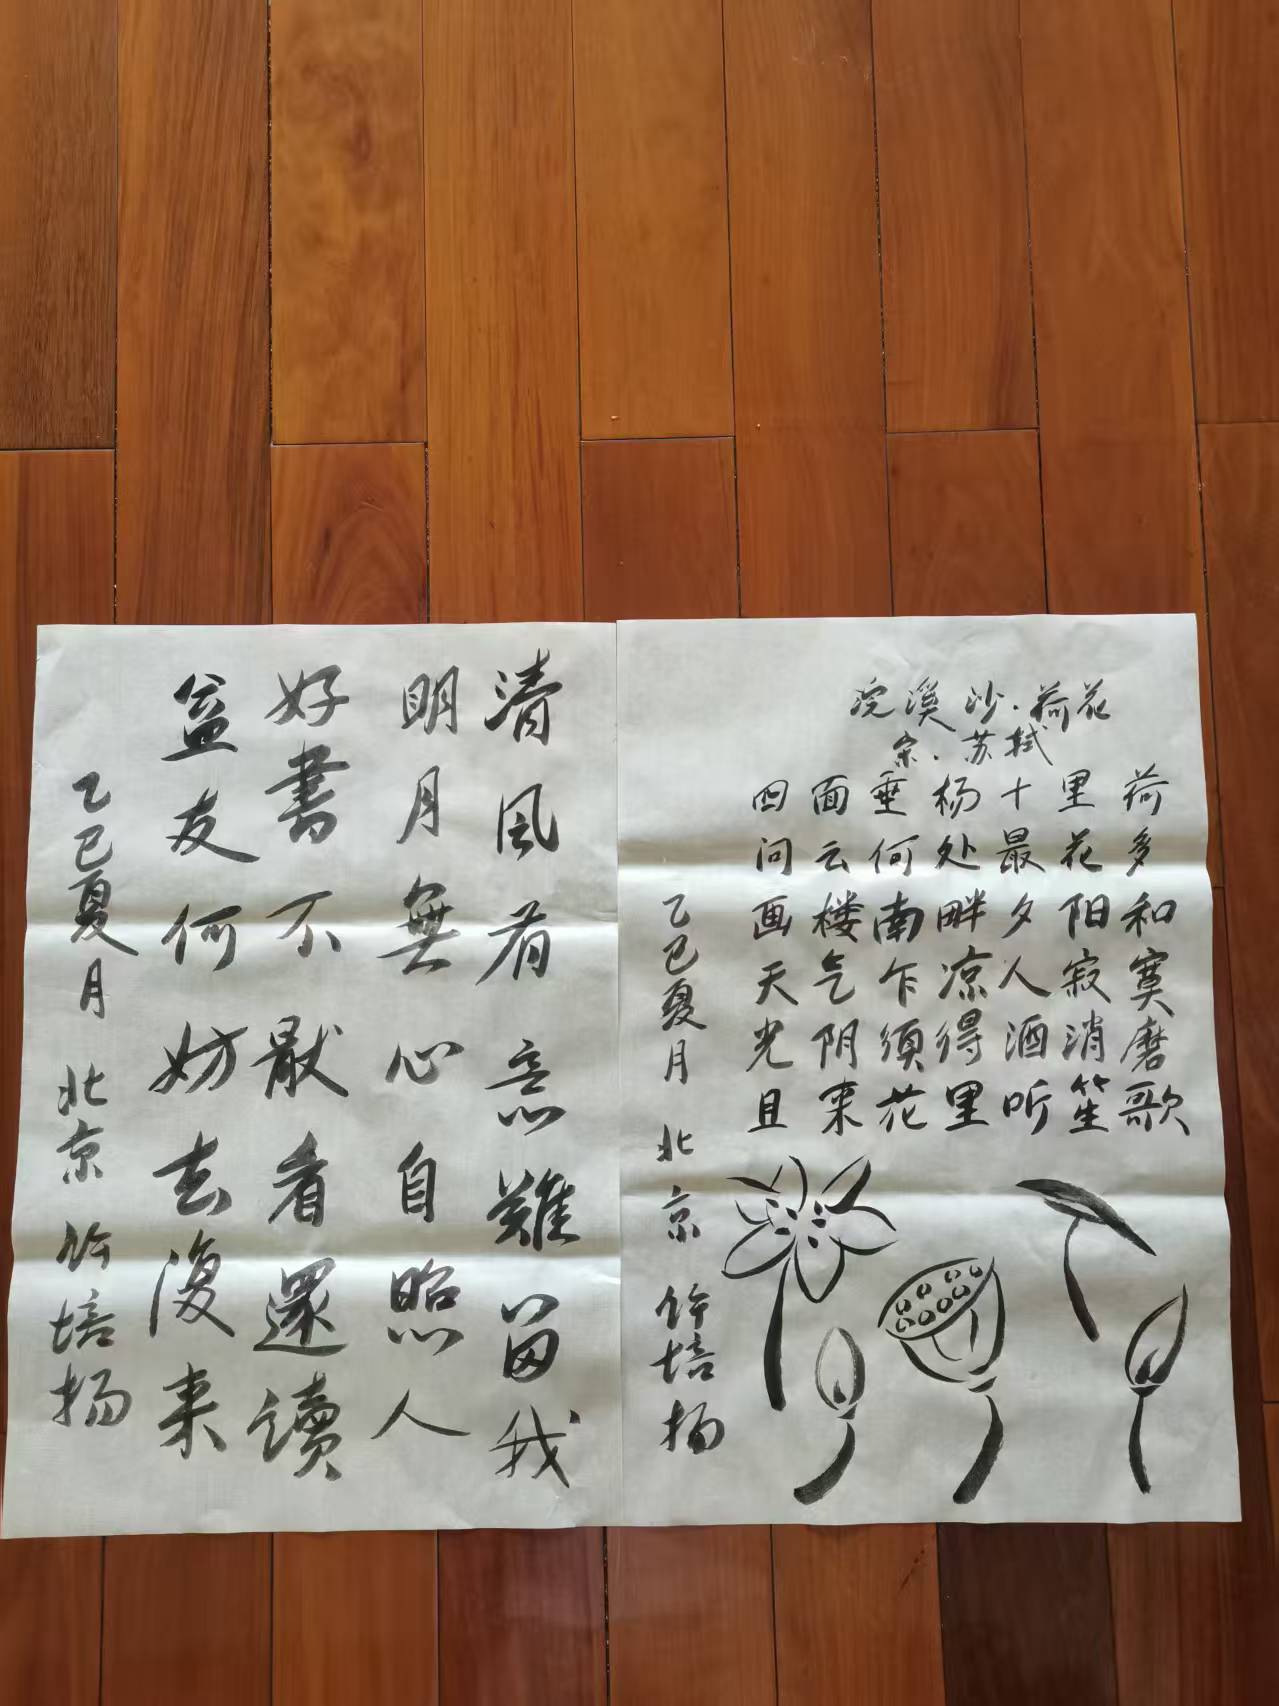 浣溪沙·荷花
宋·苏轼
四面垂杨十里荷
问云何处最花多
画楼南畔夕阳和
天气乍凉人寂寞
光阴须得酒消磨
且来花里听笙歌
乙巳夏月 北京 许培扬
清風有意難留我
明月無心自照人
好書不猒看還讀
益友何妨去復来
乙巳夏月 北京 许培扬